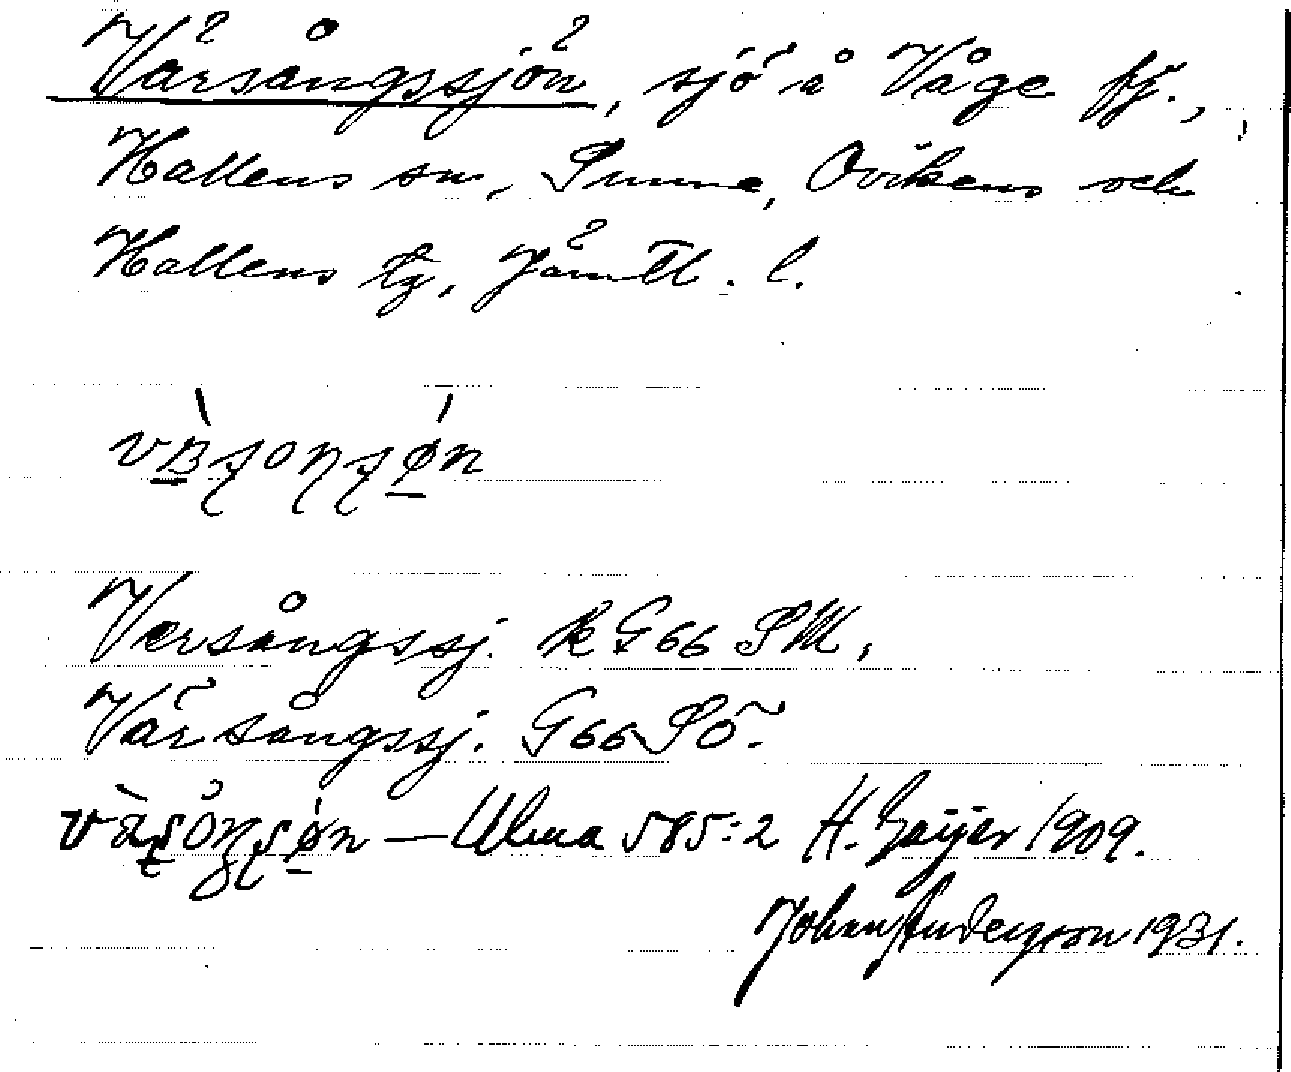 Vårsångssjön, sjö å Våge fj.,
Hallens sn, Sunne, Ovikens och
Hallens tg, Jämtl. l.
Versångssj. k G 66 SM,
Vårsångssj. G 66 SÖ.
— Ulma 585:2 H. Geijer 1909.
Johan Anderson 1931.